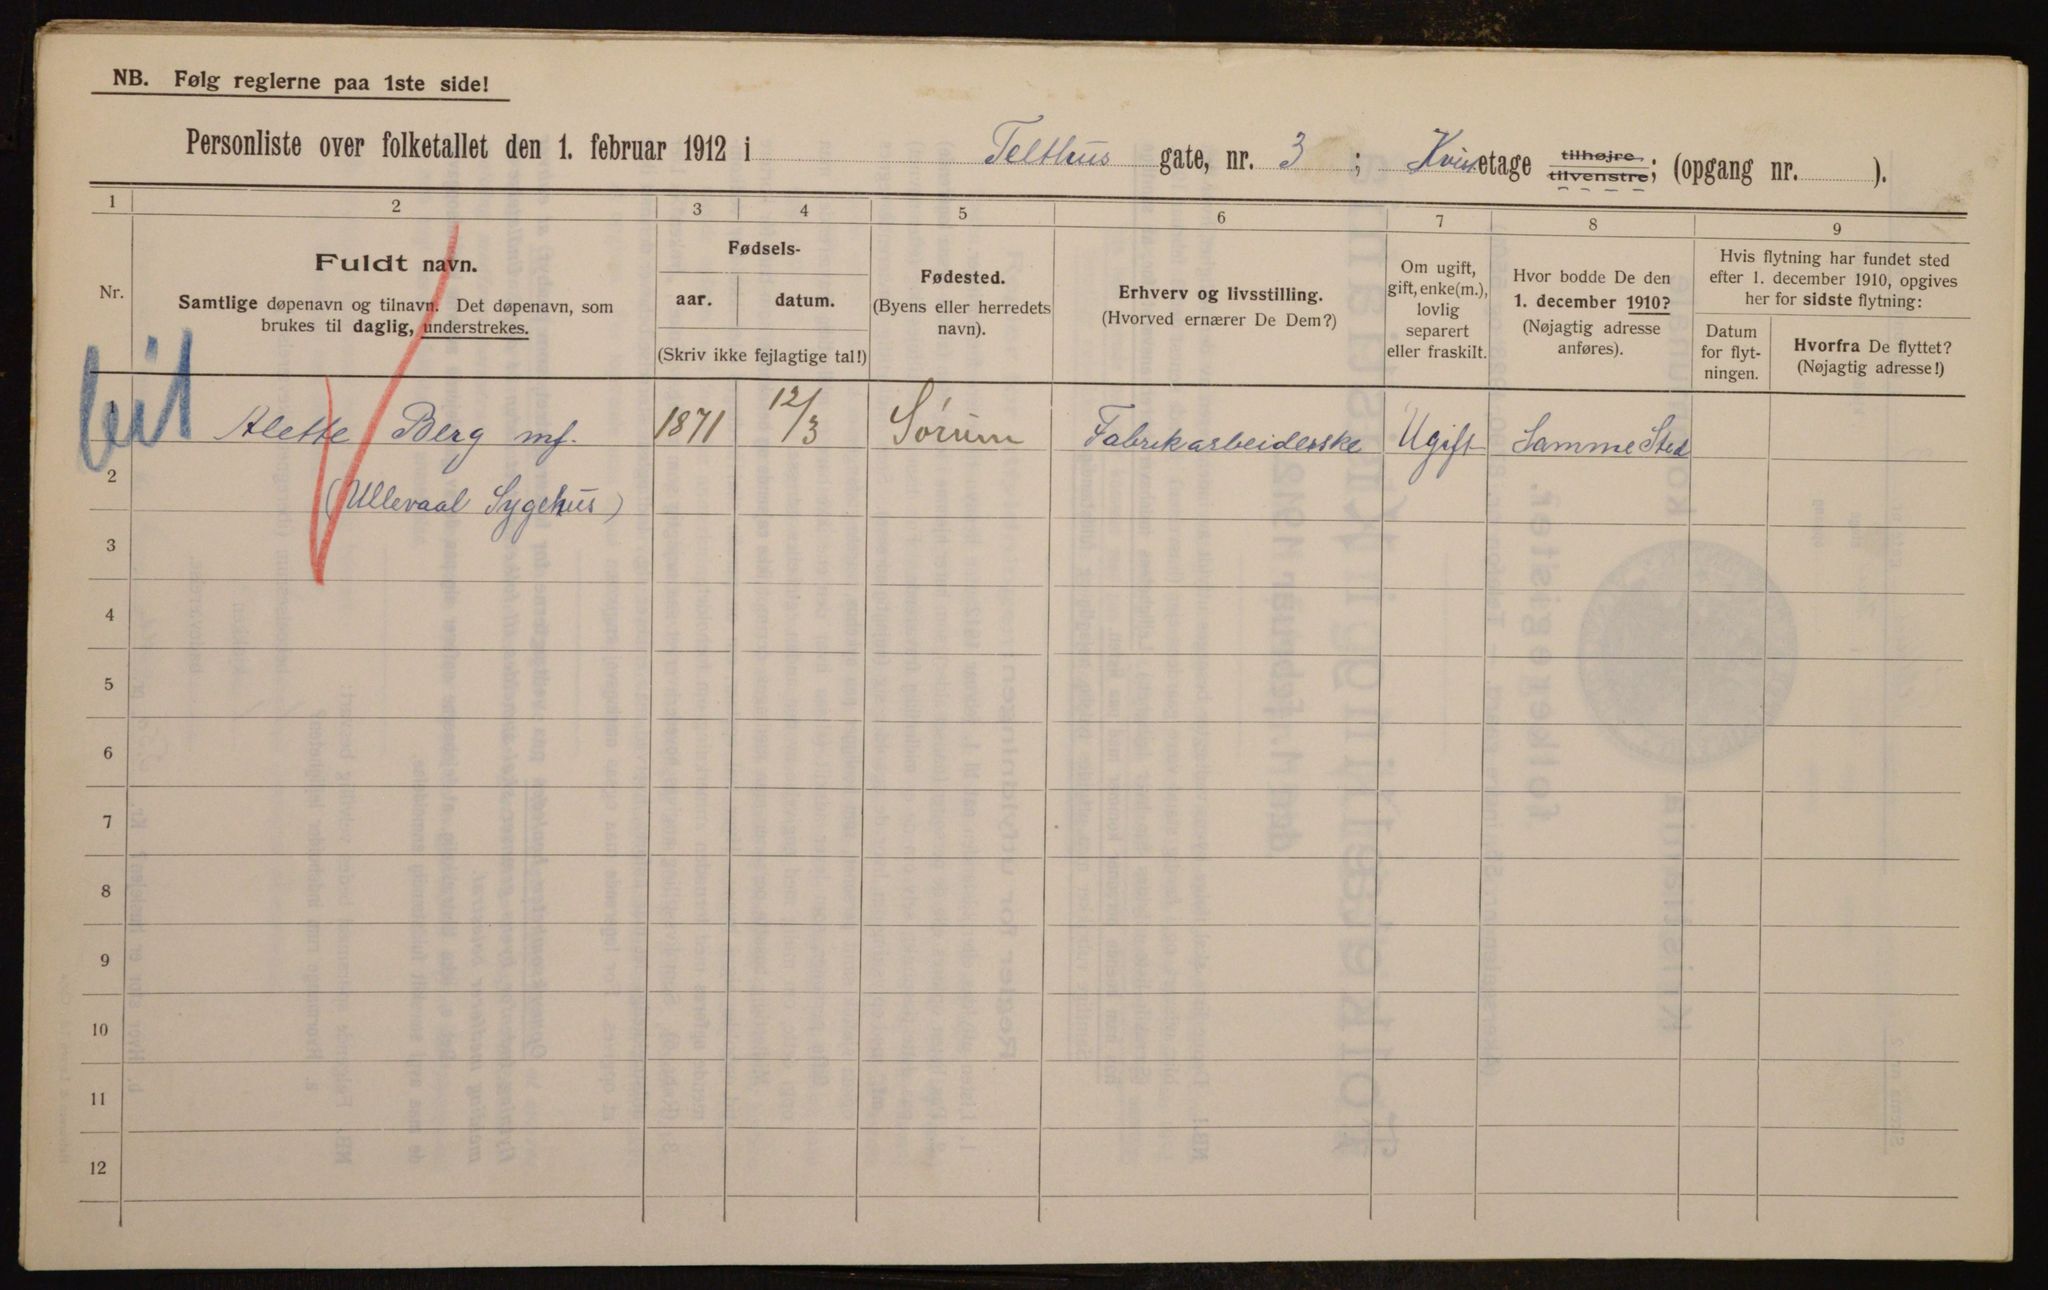 NB. Følg reglerne paa 1ste side!
Personliste over folketallet den 1. februar 1912 i Telthus gate, nr. 3 ; Kvist etage tilhøjre tilvenstre; (opgang nr. ).
1 2 3 4 5 6 7 8 9
Nr.
Fuldt navn.
Samtlige døpenavn og tilnavn. Det døpenavn, som
brukes til daglig, understrekes.
Fødsels-
aar. datum.
(Skriv ikke fejlagtige tal!)
Fødested.
(Byens eller herredets
navn).
Erhverv og livsstilling.
(Hvorved ernærer De Dem?)
Om ugift,
gift, enke(m.),
lovlig
separert
eller fraskilt.
Hvor bodde De den
1. december 1910?
(Nøjagtig adresse
anføres).
Hvis flytning har fundet sted
efter 1. december 1910, opgives
her for sidste flytning:
Datum
for flyt-
ningen.
Hvorfra De flyttet?
(Nøjagtig adresse!)
1 Alette Berg mf. 1871 12/3 Sørum Fabrikarbeiderske Ugift Samme Sted
2 (Ullevaal Sygehus)
3
4
5
6
7
8
9
10
11
12